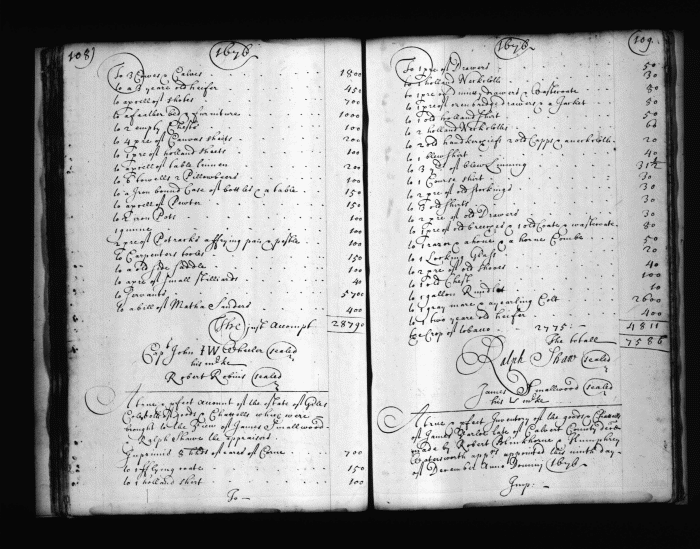 108)
1676
To 3 Cowes & Calves 1800
to a 3 yeare old heifer 450
to a prcell of shotes 700
to a feather bed & furnitures 1000
to 2 empty Chests 100
to 4 pre of Canvas sheets 200
to 1 pre of holland sheets 100
to a prcell of table linnen 200
to 6 towells 2 Pillowbeers 100
to a Iron bound Case of bottles & a table 150
to a prcell of Pewter 150
to Iron Potts 100
1 gunne 100
2 pre of Potracks a frying pan & pestle 100
to Carpenters tooles 150
to a old side saddle 100
to a pre of small stilliards 40
to Servants 5700
to a bill of Matha Sanders 400
The just Accompt 28790
Capt John IW Wheeler (sealed
his mrke
Robert Robins (sealed
A true & pfect account of the Estate of
goods & Chattells which were
brought to the View of James Smallwood
Ralph Shawe the appraisors
Imprimis 8 of eares of Corne 700
to 1 frying 150
to 1 holland shirt 100
To —
109
1676
To 1 pre of Drawers 50
to 1 holland Neckcloth 30
to 1 pre of drawers & Wastcoate 80
to 1 pre of drawers & a Jackett 80
to 1 old holland shirt 50
to 2 holland Neckcloths 60
to 2 old handkercheifs 2 old Capps & a neckcloth 20
to 1 blew shirt 40
to 3 yds of blew Linning 31½
to 1 Course shirt 30
to 2 pre of old stockings 30
to 3 old shirts 30
to 2 pre of old Drawers 30
to 3 pre of old breeches & 1 old Coate & wastcoate 80
to 1 razor & a hone & a horne Combe 50
to 1 Looking Glass 20
to 2 pre of old shooes 40
to 1 old Chest 100
to 1 gallon Rundlet 10
to 1 gray mare & a yearling Colt 2600
to 1 two yeare old heifer 400
the Crop of tobacco 2775 4811
The totall 7586
Ralph Shaw (sealed
James Smallwood (sealed
his mrke
A true & pfect Inventory of the goods & Chattells
of James late of Calvert County
made by Robert & Humphrey
apprs appointed this ninth day
of December Anno Domini 1676
Imp: —